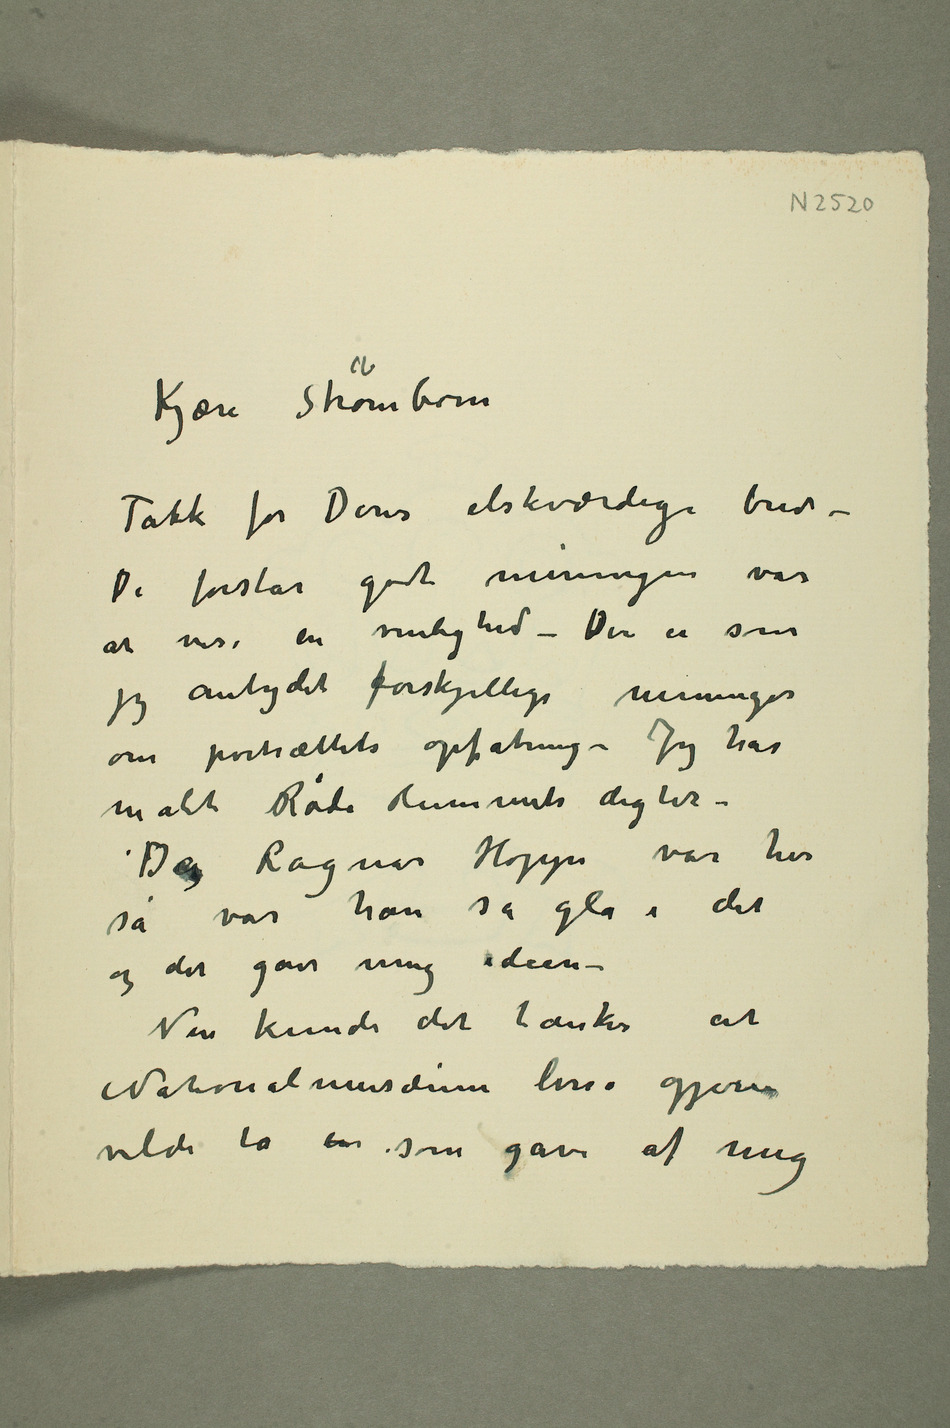 N 2520
Kjære Strømbom
Takk for Deres elskværdige brev –
De forstår godt meningen var
at vise en venlighed – Der er som
jeg antydet forskjellige meninger
om portrættets opfatning – Jeg har
malt Røda Rummets digter –
Da Ragnar Hoppe var her
så var han så gla i det
og det gav mig ideen –
Nu kunde det tænkes at
Nationalmusæum liksa gjerne
vilde ta en som gave af mig